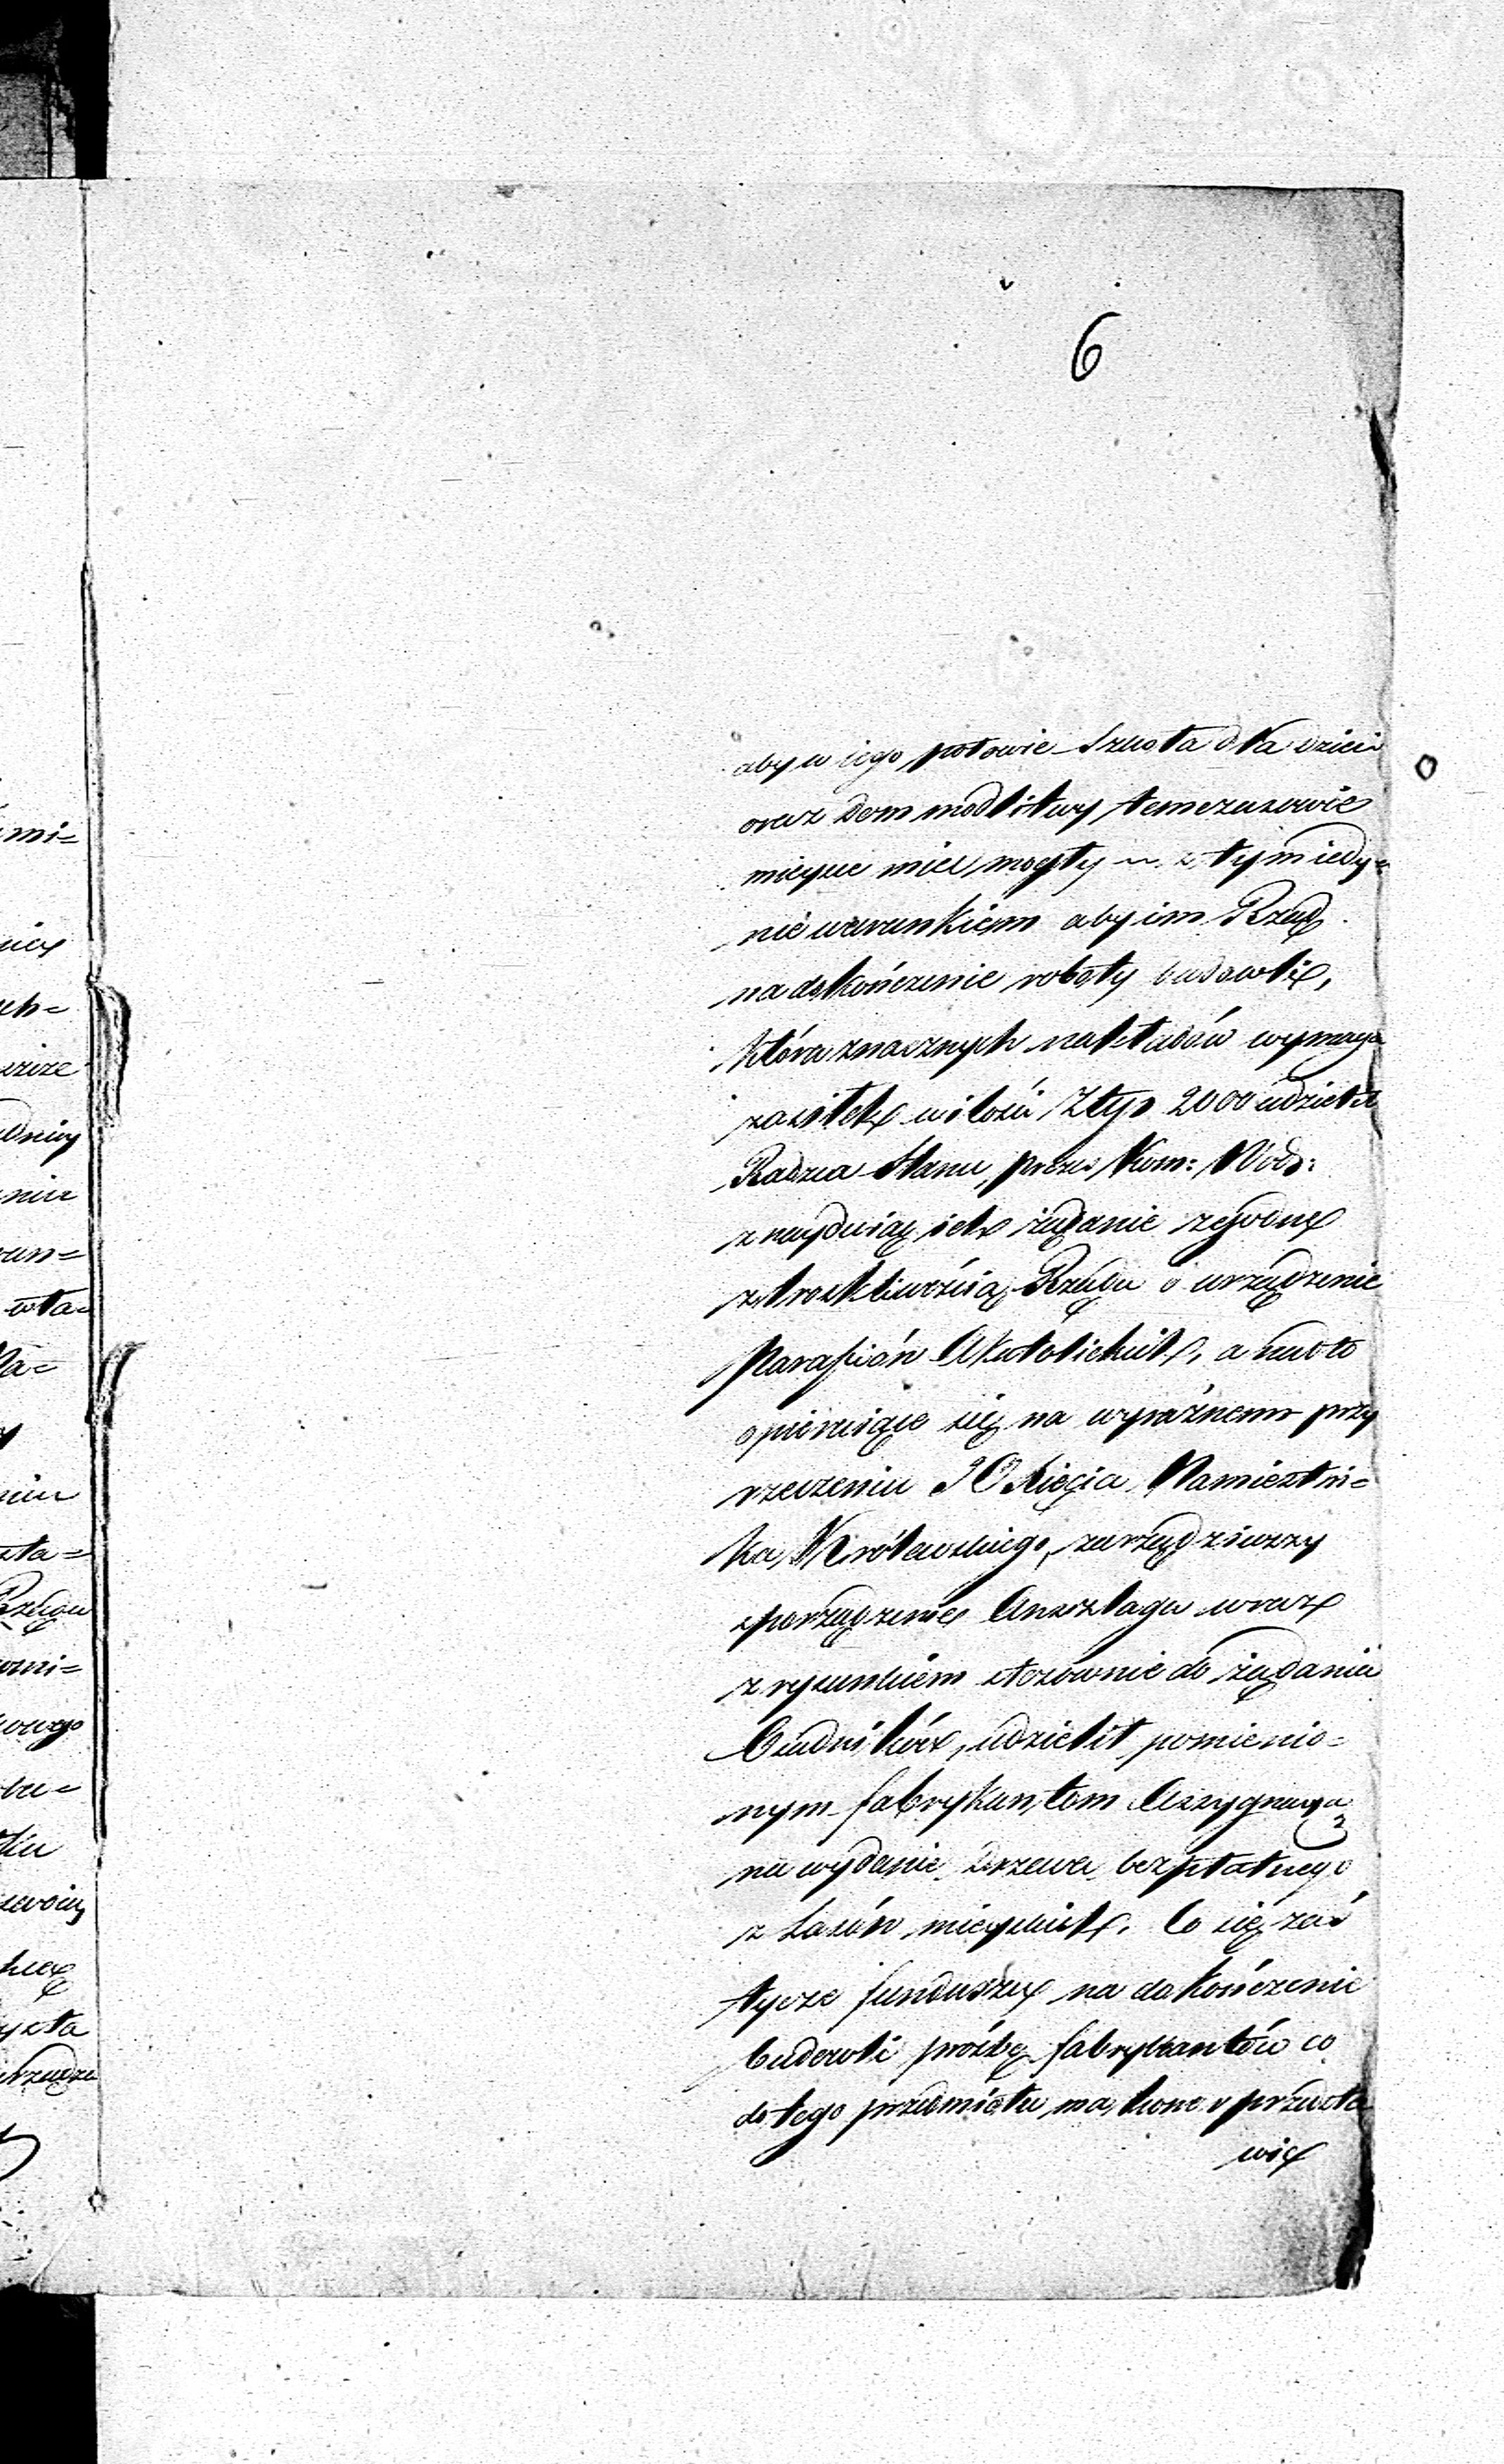 6
aby w iego połowie Szkoła dla dzieci
oraz Dom modlitwy temczasowie
mieysce mieć mogły z tym iedy=
nie warunkiem aby im Rząd
na dokończenie roboty budowli,
która znacznych nakładów wymaga
zasiłek w ilości Złtp 2000 udzielił
Radzca Stanu, prezes Kom: Wdz:
znayduiąc ich żądanie zgodne
z troskliwością Rządu o urządzenie
Parafiów Akatolickich, a nadto
opieraiąc się na wyraźnem przy
rzeczeniu JO Xięcia Namiestni=
ka Królewskiego, zarządziwszy
sporządzenie Anszlagu wraz
z rysunkiem stosownie do żądania
udzielił pomienio=
nym fabrykantom Assygnacyą
na wydanie drzewa bezpłatnego
z Lasów mieyskich. Co się zaś
tycze funduszu na dokończenie
budowli prośbę fabrykantów co
do tego przedmiotu ma honor przedsta
wić
mi=
wła=
sta=
Rządu